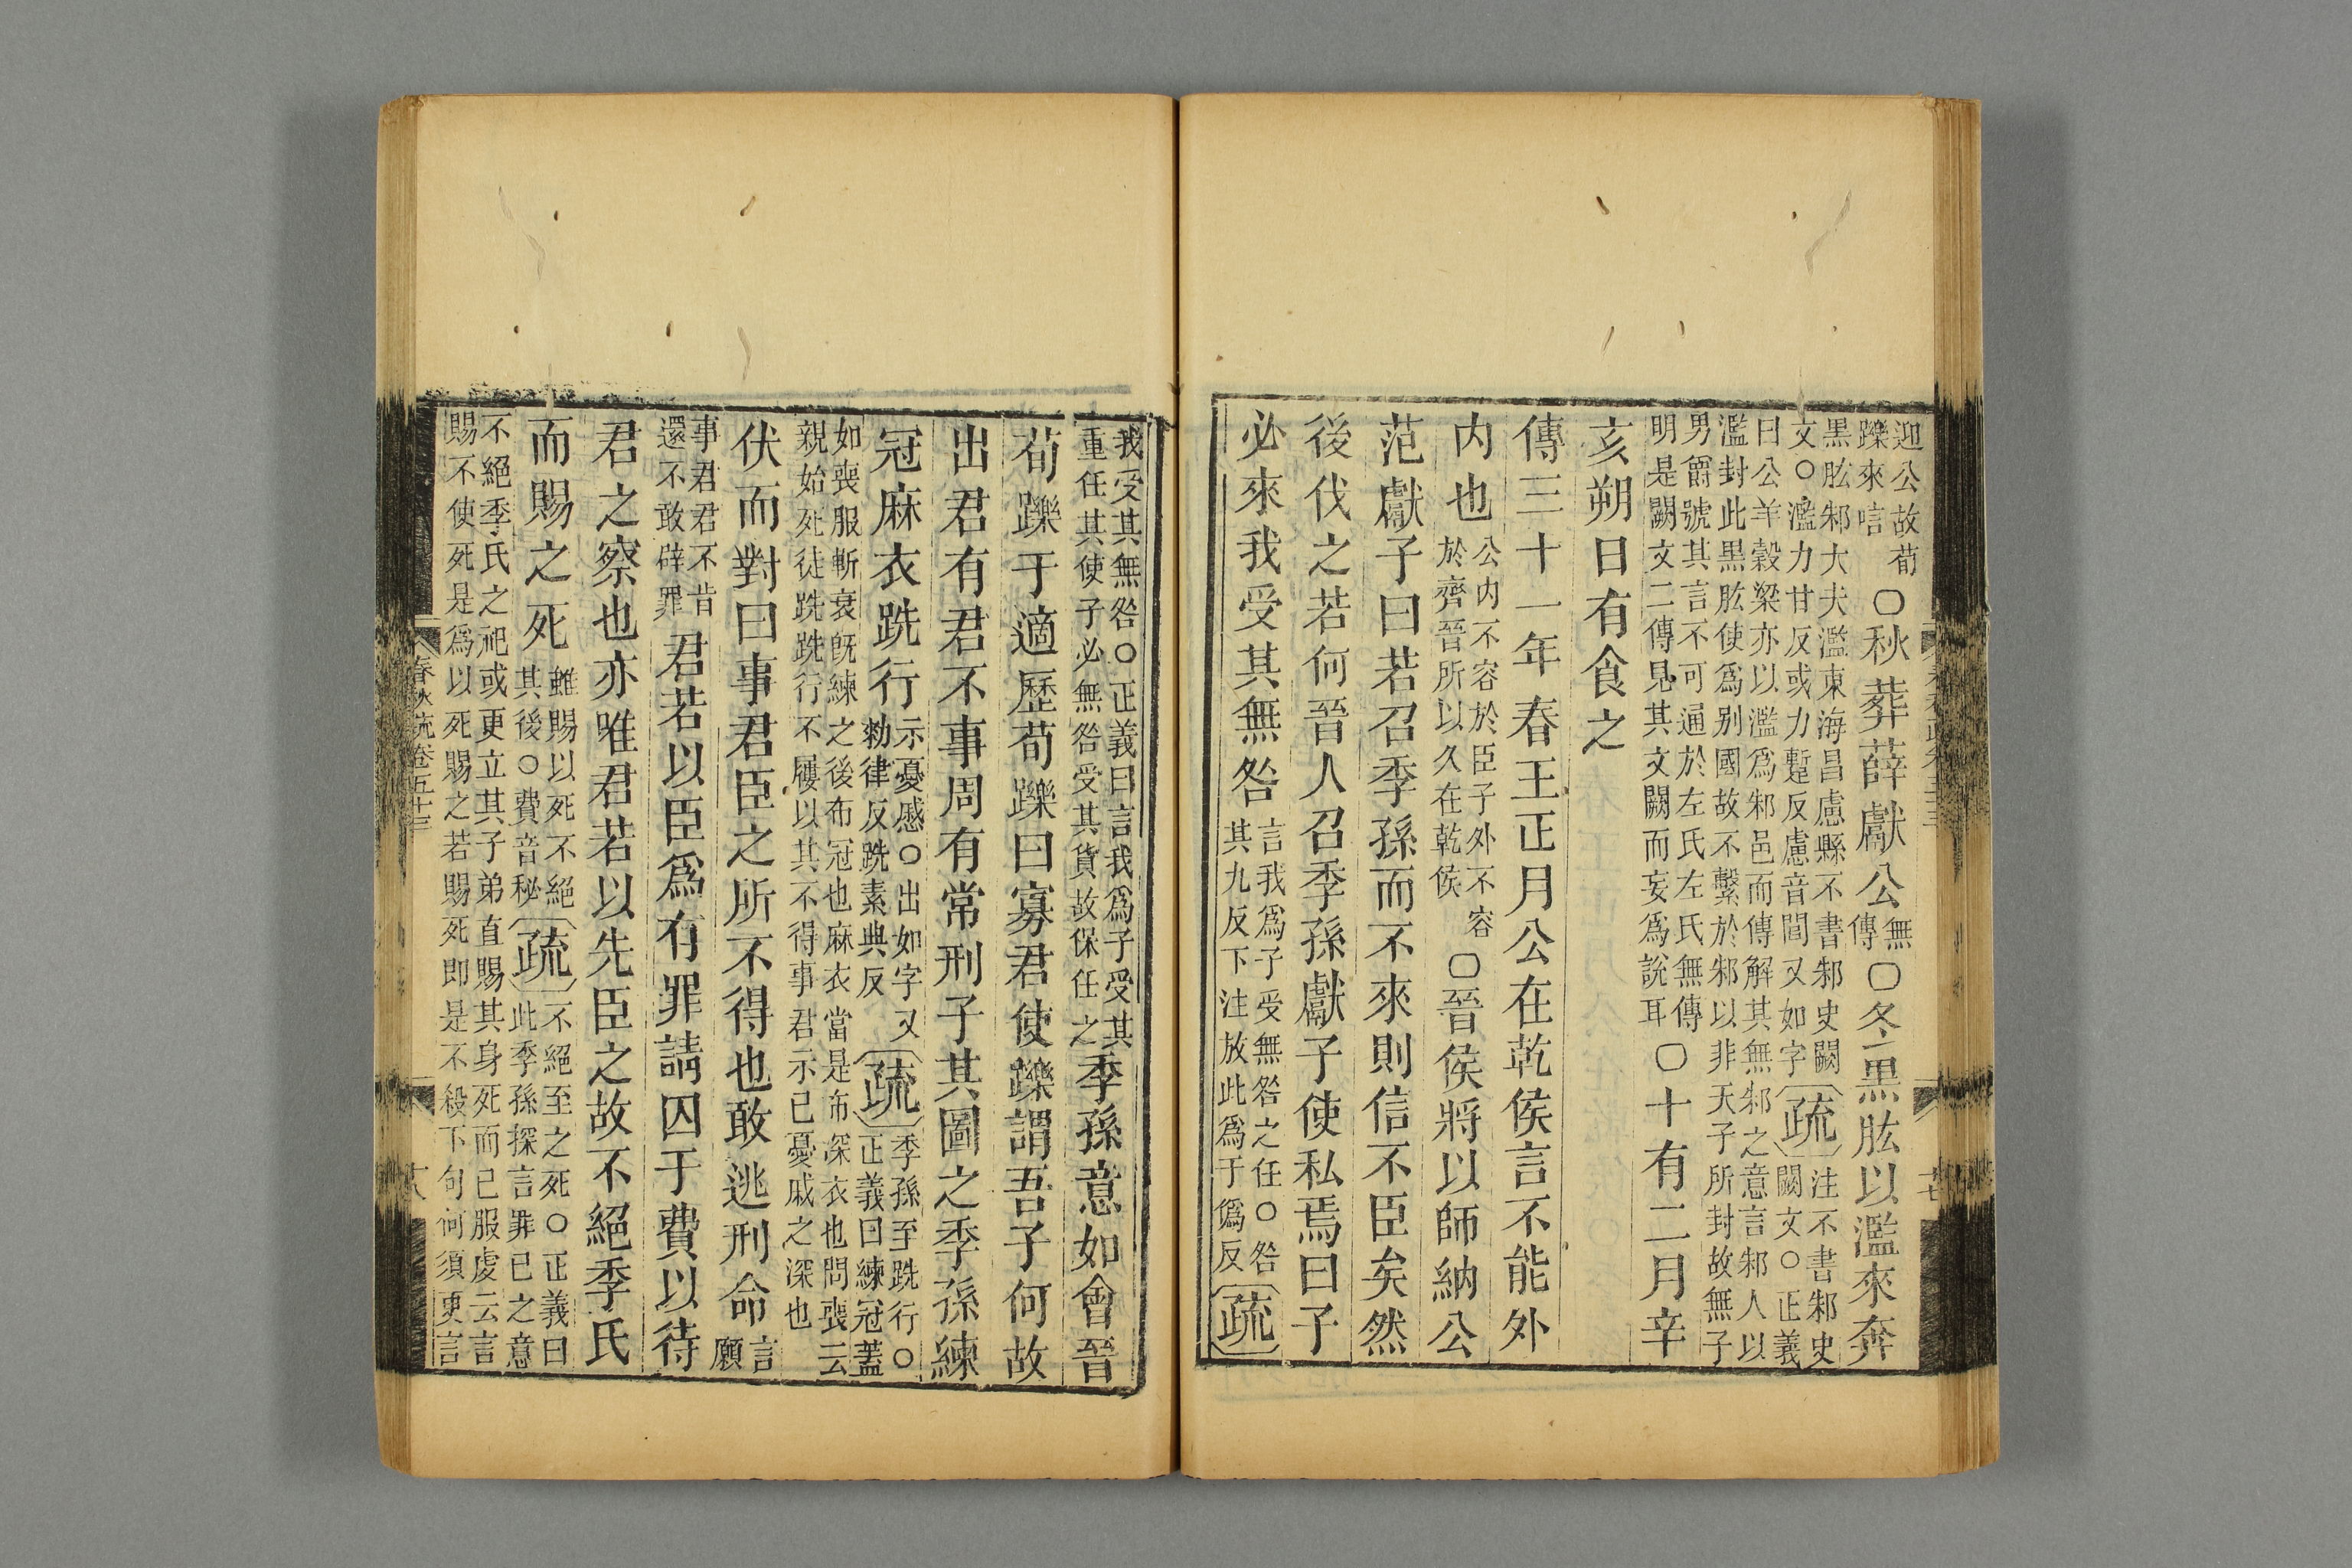 迎公故荀躒來唁〇秋葬薛獻公無傳〇冬黒肱以濫來奔
黒肱邾大夫濫東海昌慮縣不書邾史闕文〇濫力甘反或力蹔反慮音閭又如字疏注不書邾史闕文〇正義
曰公羊穀梁亦以濫爲邾邑而傳解其無邾之意言邾人以濫封此黒肱使爲別國故不繫於邾以非天子所封故無子
男爵號其言不可通於左氏左氏無傳明是闕文二傳見其文闕而妄爲說耳〇十有二月辛
亥朔日有食之
傳三十一年春王正月公在乾侯言不能外
内也公内不容於臣子外不容於齊晉所以久在乾侯〇晉侯將以師納公
范獻子曰若召季孫而不來則信不臣矣然
後伐之若何晉人召季孫獻子使私焉曰子
必來我受其無咎言我爲子受無咎之任〇咎其九反下注放此爲于僞反疏
我受其無咎〇正義曰言我爲子受其重任其使子必無咎受其貨故保任之季孫意如會晉
荀躒于適歷荀躒曰寡君使躒謂吾子何故
出君有君不事周有常刑子其圖之季孫練
冠麻衣跣行示憂慼〇出如字又勑律反跣素典反疏季孫至跣行〇正義曰練冠蓋
如喪服斬衰既練之後布冠也麻衣當是布深衣也問喪云親始死徒跣跣行不屨以其不得事君示已憂戚之深也
伏而對曰事君臣之所不得也敢逃刑命言願
事君君不肯還不敢辟罪君若以臣爲有罪請囚于費以待
君之察也亦唯君若以先臣之故不絕季氏
而賜之死雖賜以死不絕其後〇費音秘疏不絕至之死〇正義曰此季孫探言罪已之意
不絕季氏之祀或更立其子弟直賜其身死而已服虔云言賜不使死是爲以死賜之若賜死即是不殺下句何須更言
春秋疏卷五十三
十八
十七